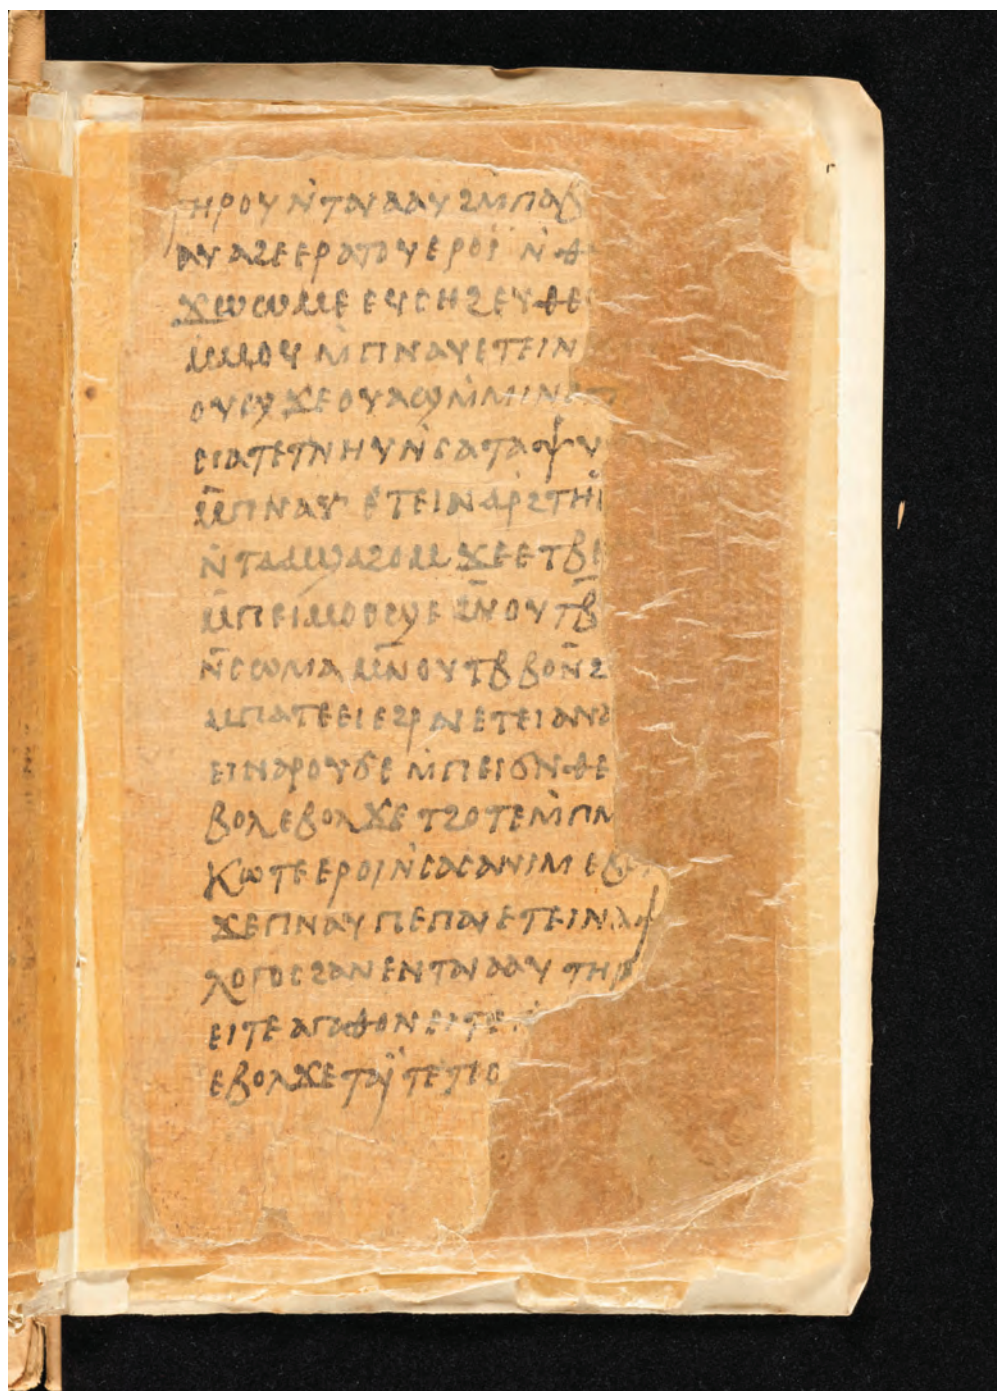 ⲧⲏⲣⲟⲩ ⲛ̇ⲧⲁⲓⲁⲁⲩ ϩⲙ̇ⲡⲁⲃ
ⲁⲩⲁϩⲉⲉⲣⲁⲧⲟⲩⲉⲣⲟⲓ̈ ⲛ̇ⲑ
ϫⲱⲱⲙⲉ ⲉⲩⲥⲏϩ ⲉⲩⲑⲉ
ⲙ̇ⲙⲟⲩ ⲙ̇ⲡⲛⲁⲩⲉⲧⲉⲓⲛ
ⲟⲩⲱϣ ϫⲉⲟⲩⲁϣⲙ̇ⲙⲓⲛⲉ
ⲉⲓⲁⲧⲉⲧⲛⲏⲩⲛ̇ⲥⲁⲧⲁⲯⲩ
ⲙ̄ⲡⲛⲁⲩ ⲉⲧⲉⲓⲛⲁⲣ̇ϩⲧⲏⲓ
ⲛ̇ⲧⲁⲁϣⲁϩⲟⲙ ϫⲉⲉⲧⲃⲉ
ⲙ̇ⲡⲉⲓⲙⲟⲟϣⲉ ϩ̄ⲛⲟⲩⲧⲃ̄
ⲛ̄ⲥⲱⲙⲁ ⲙⲛ̄ⲟⲩⲧⲃⲃⲟⲛ̄ϩ
ⲙ̇ⲡⲁⲧⲉⲉⲓⲉϩⲣⲁⲓⲉⲧⲉⲓⲁⲛⲁ
ⲉⲓⲛⲁⲣⲟⲩϭⲉ ⲙ̇ⲡⲉⲓϭⲛ̇ⲑⲉ
ⲃⲟⲗⲉⲃⲟⲗϫⲉ ⲧϩⲟⲧⲉⲙ̇ⲡⲙ
ⲕⲱⲧⲉⲉⲣⲟⲓⲛ̇ⲥⲁⲥⲁⲛⲓⲙ ⲉⲃⲟ
ϫⲉⲡⲛⲁⲩⲡⲉⲡⲁⲓⲉⲧⲉⲓⲛⲁϯ
ⲗⲟⲅⲟⲥϩⲁⲛⲉⲛⲧⲁⲓⲁⲁⲩ ⲧⲏⲣ
ⲉⲓⲧⲉ ⲁⲅⲁⲑⲟⲛⲉⲓⲧⲉ
ⲉⲃⲟⲗϫⲉ ⲧⲁⲓ̈ ⲧⲉ ⲧⲓⲟ